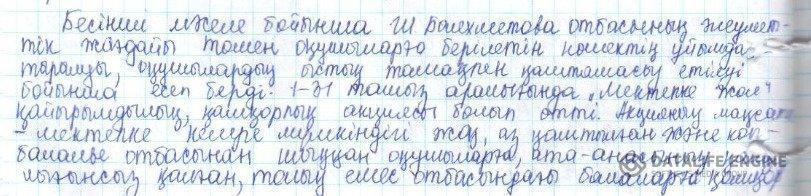 Бесінші мәселе бойынша Ш Болехметова отбасының әлеумет-
тік жағдайы төмен оқушыларға берілетін көмектің ұйымда-
тырылуы, оқушылардың ыстық тамақпен қамтамасыз етілуі
бойынша есеп берді. 1-31 тамыз аралығында „Мектепке жол"
қайырымдылық, қамқорлық акциясы болып өтті. Акцияның мақсаты
- мектепке келуге мүмкіндігі жоқ, аз қамтылған және көп-
балалы отбасынан шыққан оқушыларға, ата-анасының
қалған, толық емес отбасындағы балаларға қамқор
DATALIFE ENGINE